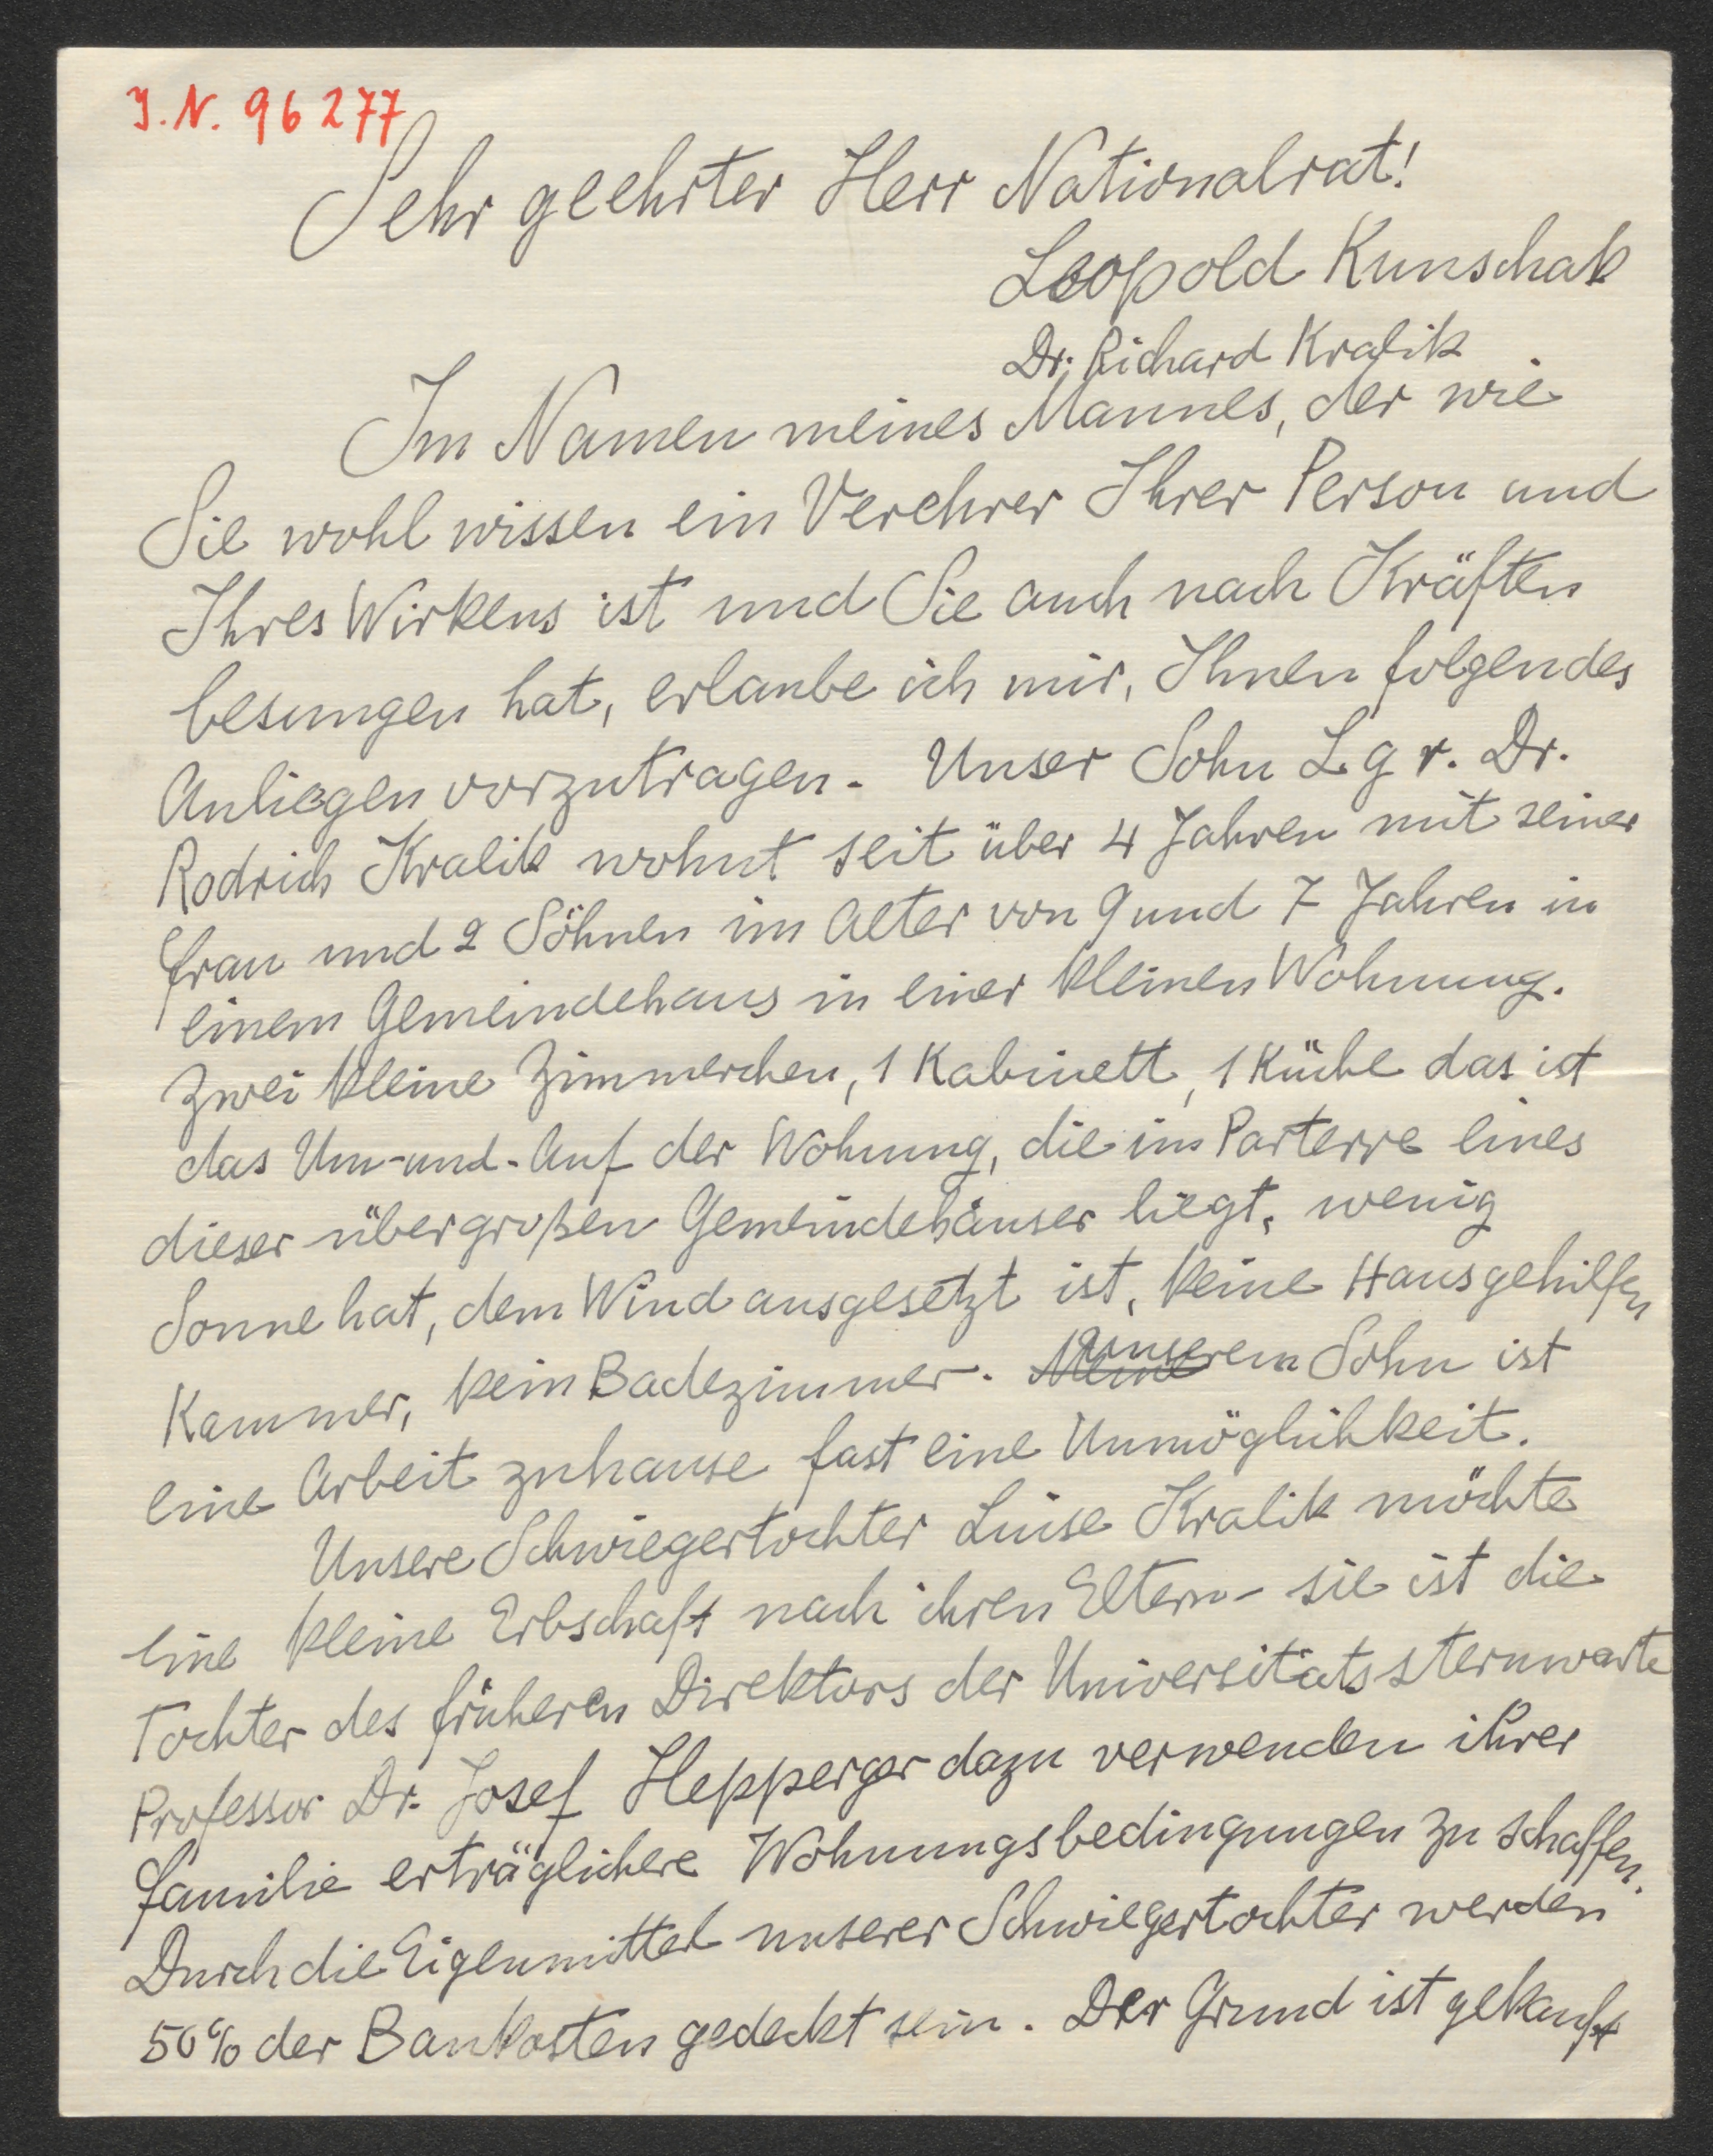 J.N. 96277
Sehr geehrter Herr Nationalrat!
Leopold Kunschak
Dr. Richard Kralik
Im Namen meines Mannes, der wie
Sie wohl wissen ein Verehrer Ihrer Person und
Ihres Wirkens ist und Sie auch nach Kräften
besungen hat, erlaube ich mir, Ihnen folgendes
Anliegen vorzutragen. Unser Sohn Lgr. Dr.
Rodrich Kralik wohnt seit über 4 Jahren mit seiner
Frau und 2 Söhnen im Alter von 9 und 7 Jahren in
einem Gemeindehaus in einer kleinen Wohnung.
Zwei kleine Zimmerchen, 1 Kabinett, 1 Küche das ist
das Um-und-Auf der Wohnung, die im Parterre eines
dieser übergroßen Gemeindehäuser liegt, wenig
Sonne hat, dem Wind ausgesetzt ist, keine Hausgehilfen
Kammer, kein Badezimmer. Unserem Sohn ist
eine Arbeit zuhause fast eine Unmöglichkeit.
Unsere Schwiegertochter Luise Kralik möchte
eine kleine Erbschaft nach ihren Eltern - sie ist die
Tochter des früheren Direktors der Universitätssternwarte
Professor Dr. Josef Hepperger dazu verwenden ihrer
Familie erträglichere Wohnungsbedingungen zu schaffen.
Durch die Eigenmittel unserer Schwiegertochter werden
50% der Baukosten gedeckt sein. Der Grund ist gekauft